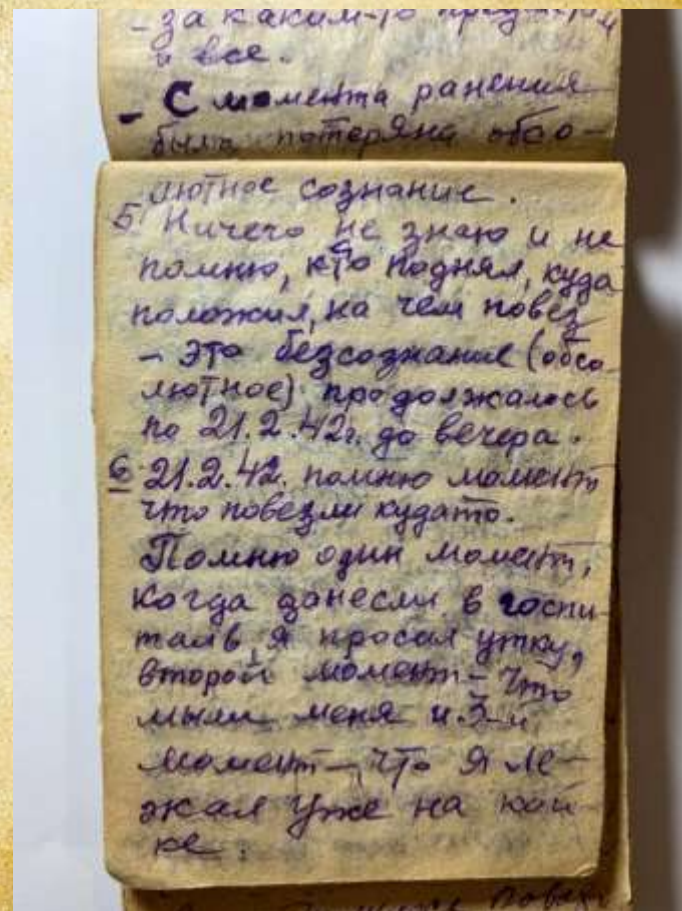 - за каким-то
и все.
- С момента ранения
была потеряна обсо-
лютное сознание.
5 Ничего не знаю и не
помню, кто поднял, куда
положил, на чем повез
- это безсознание (обсо-
лютное) продолжалось
по 21.2.42г. до вечера.
6 21.2.42. помню момент
что повезли кудато.
Помню один момент,
когда занесли в госпи-
таль, я просил утку,
второй момент - что
мыли меня и 3-й
момент - что я ле-
жал уже на кой-
ке.